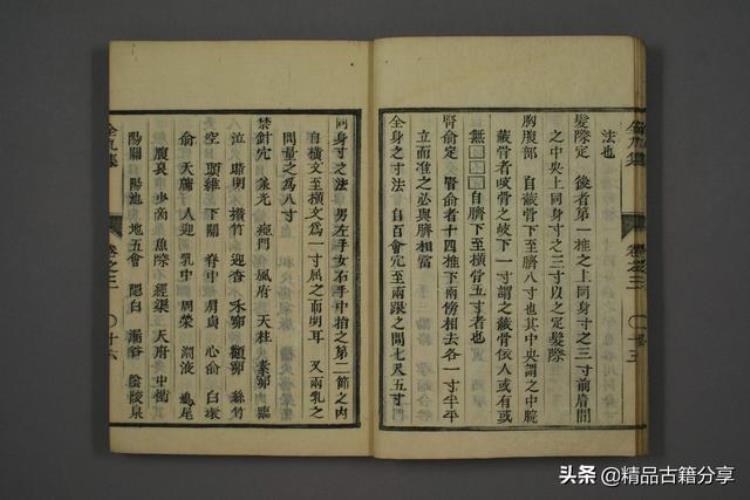 全九集 卷之三 〇十五
法也
髮際定 後者第一椎之上同身寸之三寸前眉間
之中央上同身寸之三寸以之定髮際
胸腹部 自蔽骨下至臍八寸也其中央謂之中脘
蔽骨者岐骨之岐下一寸謂之蔽骨依人或有或
無□□□□自臍下至橫骨五寸者也
腎俞定 腎俞者十四椎下兩傍相去各一寸半平
立而准之必與臍相當
全身之寸法 自百會穴至兩跟之間七尺五寸
同身寸之法 男左手女右手中指之第二節之內
自橫文至橫文爲一寸屈之而明耳 又兩乳之
間量之爲八寸
禁針穴 承光 瘂門 風府 天柱 素窌 臨
泣 睛明 攢竹 迎香 禾窌 顴窌 絲竹
空 頭維 下關 脊中 肩貞 心俞 白環
俞 天牖 人迎 乳中 周榮 淵液 鳩尾
腹哀 少商 魚際 經渠 天府 中衝
陽關 陽池 地五會 隱白 漏谷 陰陵泉
全九集 卷之三 〇十六
头条 @精品古籍分享